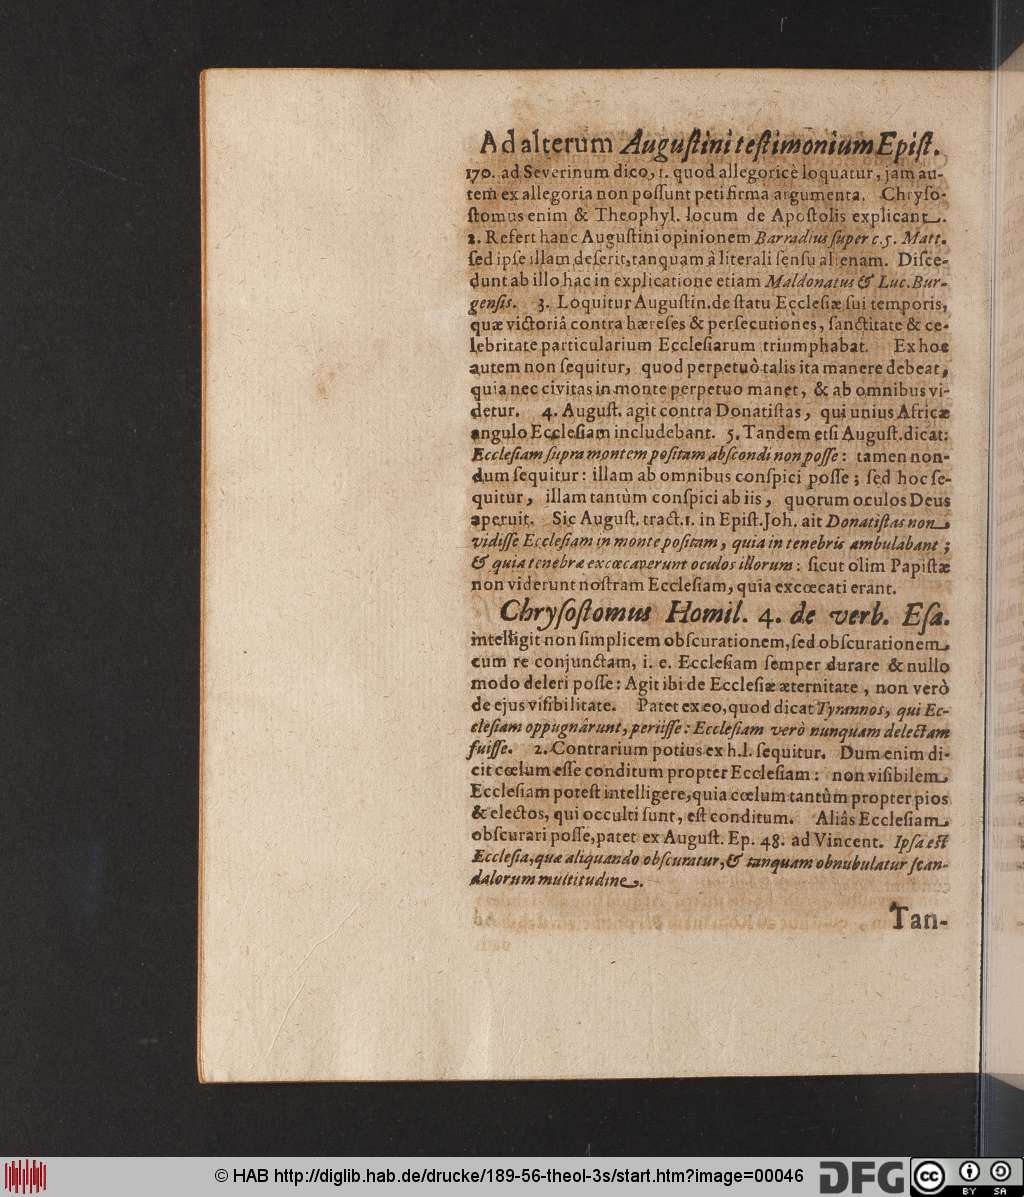 Ad alterum Augustini testimonium Epist.
170. ad Severinum dico, 1. quod allegoricè loquatur, jam au-
tem ex allegoria non possunt peti firma argumenta. Chryso-
stomus enim & Theophyl. locum de Apostolis explicant.
2. Refert hanc Augustini opinionem Barradius super c. 5. Matt.
sed ipse illam deserit, tanquam à literali sensu alienam. Disce-
dunt ab illo hac in explicatione etiam Maldonatus & Luc. Bur-
gensis. 3. Loquitur Augustin. de statu Ecclesiæ sui temporis,
quæ victoriâ contra hæreses & persecutiones, sanctitate & ce-
lebritate particularium Ecclesiarum triumphabat. Ex hoc
autem non sequitur, quod perpetuò talis ita manere debeat,
quia nec civitas in monte perpetuo manet, & ab omnibus vi-
detur. 4. August. agit contra Donatistas, qui unius Africæ
angulo Ecclesiam includebant. 5. Tandem etsi August. dicat:
Ecclesiam supra montem positam abscondi non posse: tamen non-
dum sequitur: illam ab omnibus conspici posse; sed hoc se-
quitur, illam tantùm conspici ab iis, quorum oculos Deus
aperuit. Sic August. tract. 1. in Epist. Joh. ait Donatistas non
vidisse Ecclesiam in monte positam, quia in tenebris ambulabant;
& quia tenebræ excœcaverunt oculos illorum: sicut olim Papistæ
non viderunt nostram Ecclesiam, quia excœcati erant.
Chrysostomus Homil. 4. de verb. Esa.
intelligit non simplicem obscurationem, sed obscurationem
cum re conjunctam, i. e. Ecclesiam semper durare & nullo
modo deleri posse: Agit ibi de Ecclesiæ æternitate, non verò
de ejus visibilitate. Patet ex eo, quod dicat Tyrannos, qui Ec-
clesiam oppugnârunt, periisse: Ecclesiam verò nunquam delectam
fuisse. 2. Contrarium potius ex h. l. sequitur. Dum enim di-
cit cœlum esse conditum propter Ecclesiam: non visibilem
Ecclesiam potest intelligere, quia cœlum tantùm propter pios
& electos, qui occulti sunt, est conditum. Aliâs Ecclesiam
obscurari posse, patet ex August. Ep. 48. ad Vincent. Ipsa est
Ecclesia, quæ aliquando obscuratur, & tanquam obnubulatur scan-
dalorum multitudine.
Tan-
© HAB http://diglib.hab.de/drucke/189-56-theol-3s/start.htm?image=00046
DFG
cc BY SA